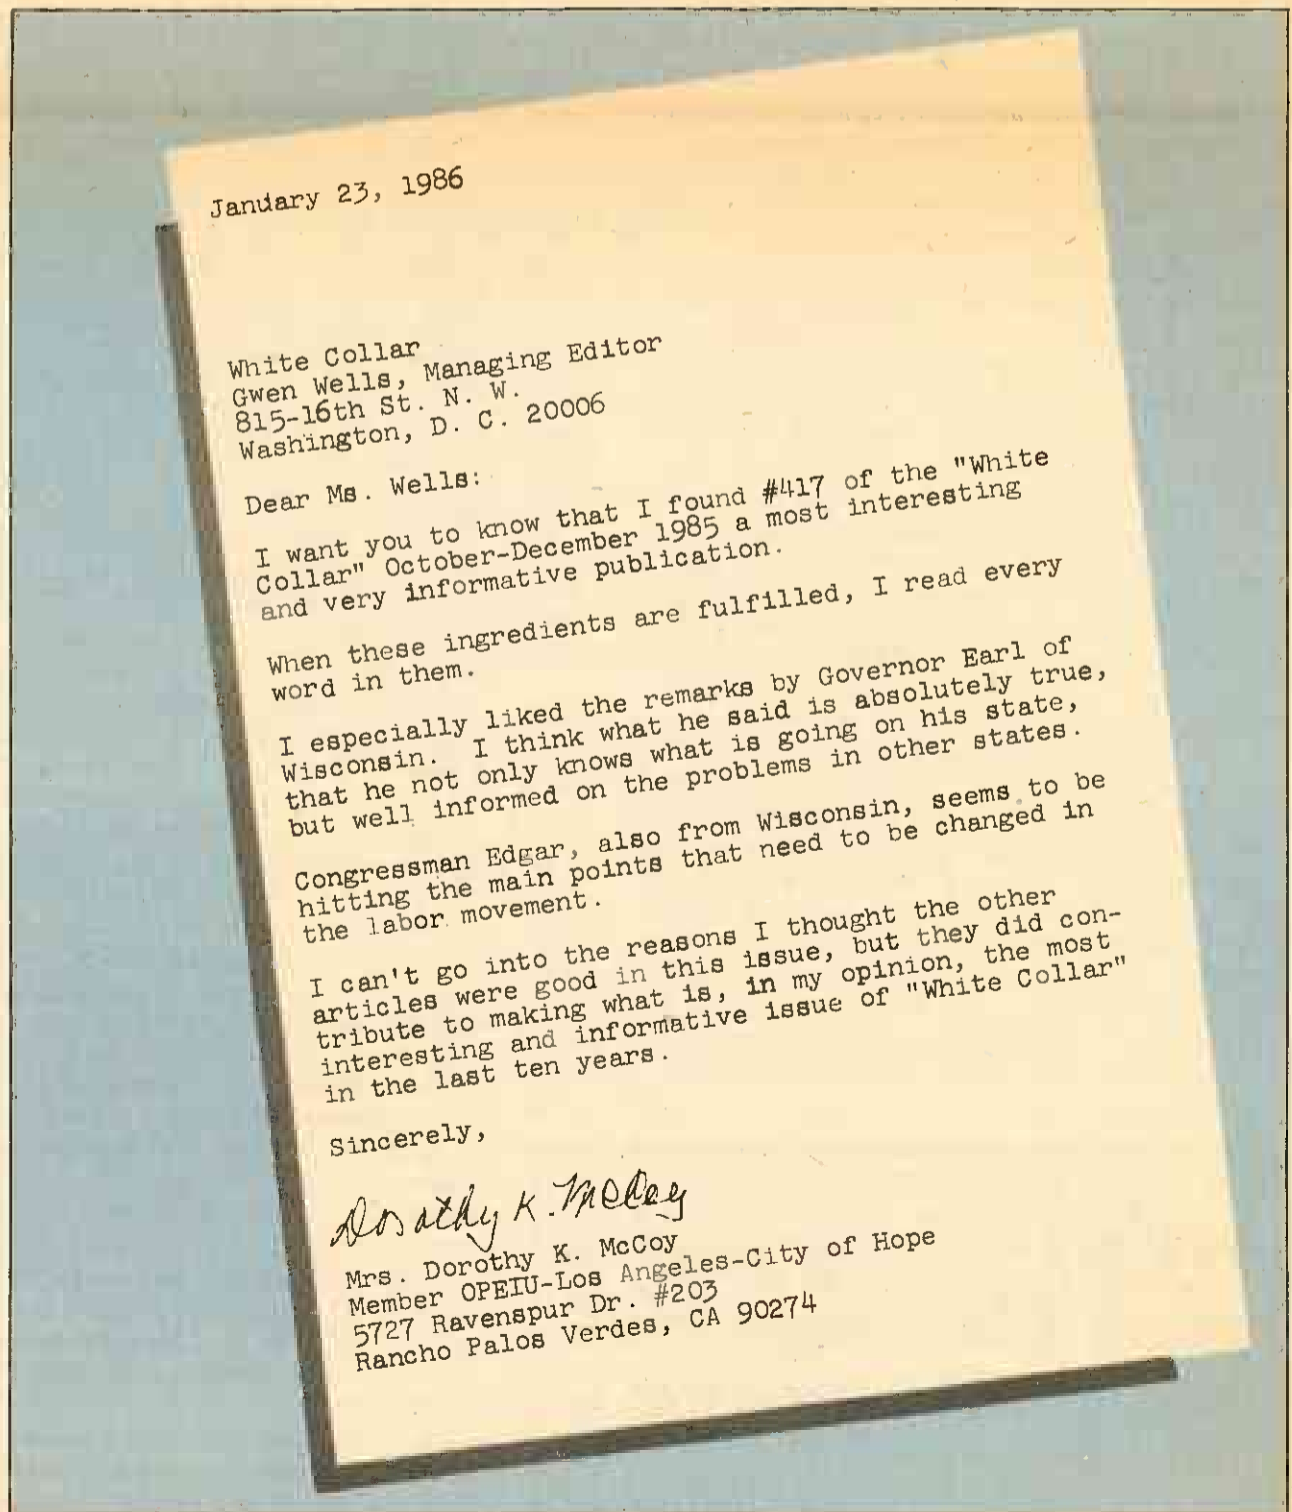 January 23, 1986
White Collar
Gwen Wells, Managing Editor
815-16th St. N. W.
Washington, D. C. 20006
Dear Ms. Wells:
I want you to know that I found #417 of the "White
Collar" October-December 1985 a most interesting
and very informative publication.
When these ingredients are fulfilled, I read every
word in them.
I especially liked the remarks by Governor Earl of
Wisconsin. I think what he said is absolutely true,
that he not only knows what is going on his state,
but well informed on the problems in other states.
Congressman Edgar, also from Wisconsin, seems to be
hitting the main points that need to be changed in
the labor movement.
I can't go into the reasons I thought the other
articles were good in this issue, but they did con-
tribute to making what is, in my opinion, the most
interesting and informative issue of "White Collar"
in the last ten years.
Sincerely,
Dorothy K. McCoy
Mrs. Dorothy K. McCoy
Member OPEIU-Los Angeles-City of Hope
5727 Ravenspur Dr. #203
Rancho Palos Verdes, CA 90274